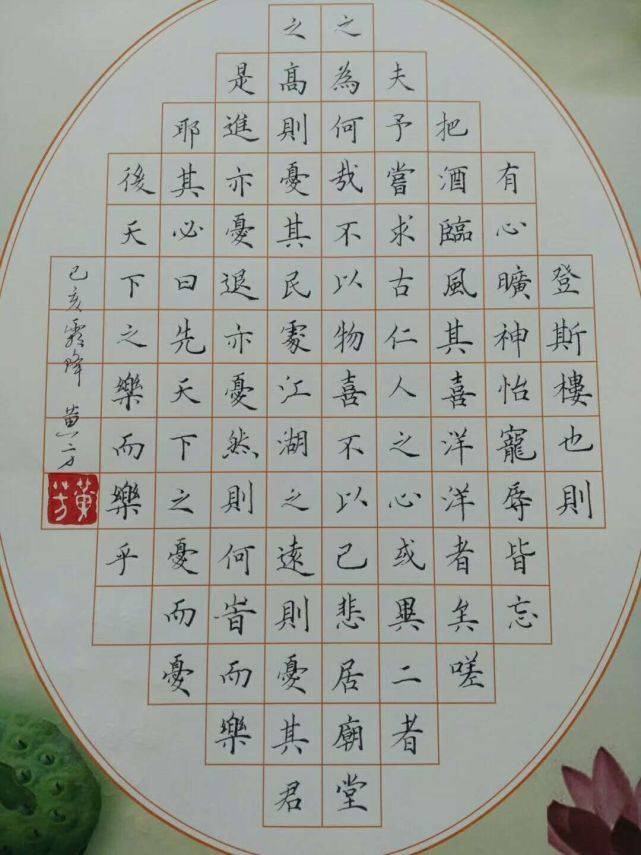 登斯樓也則
有心曠神怡寵辱皆忘
把酒臨風其喜洋洋者矣嗟
夫予嘗求古仁人之心或異二者
之為何哉不以物喜不以己悲居廟堂
之髙則憂其民處江湖之遠則憂其君
是進亦憂退亦憂然則何旹而樂
耶其必曰先天下之憂而憂
後天下之樂而樂乎
己亥霜降 黄芳
黄芳